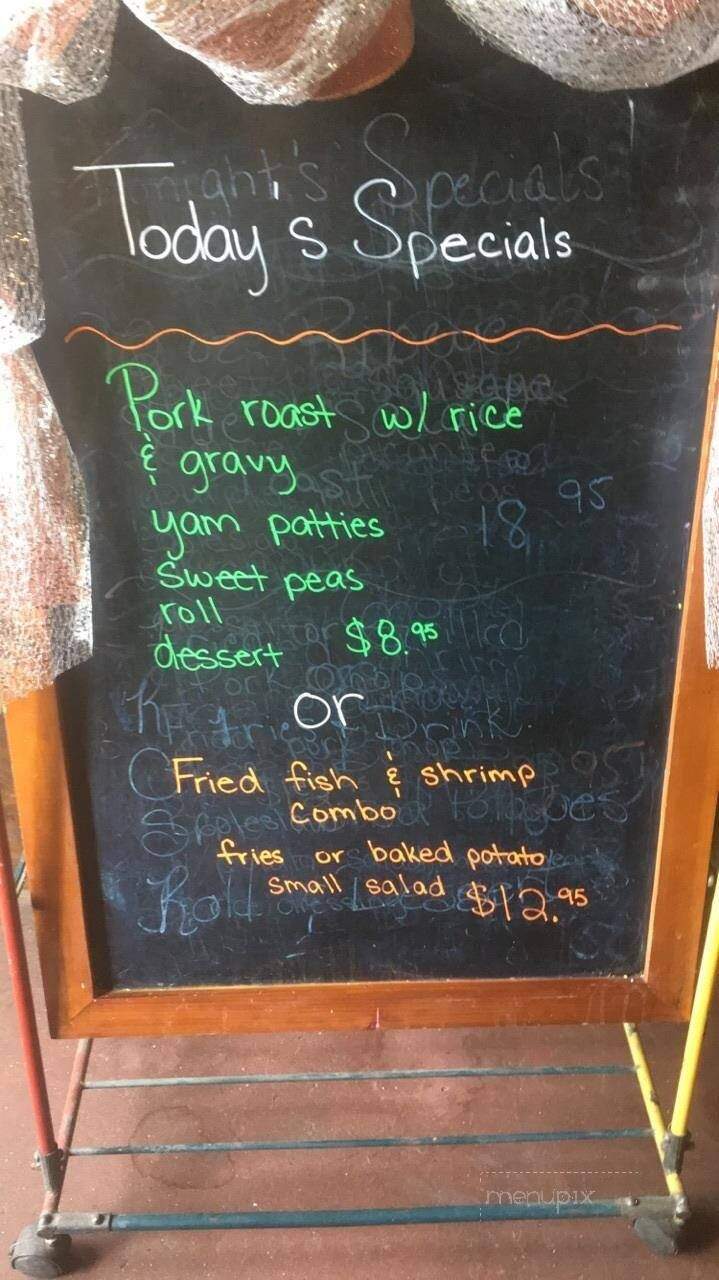 Today's Specials
Pork roast w/ rice
& gravy
yam patties
sweet peas
roll
dessert $8.95
or
Fried fish & shrimp
combo
fries or baked potato
small salad $12.95
menupix